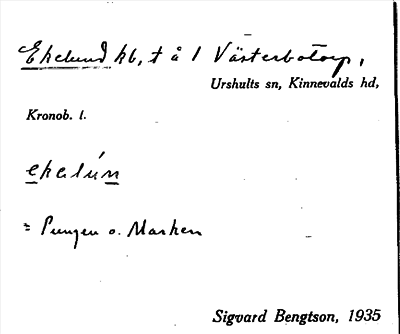 Ekelund hb, t å 1 Västerbotorp,
Urshults sn, Kinnevalds hd,
Kronob. l.
ekalún
= Pungen o. Marken
Sigvard Bengtson, 1935